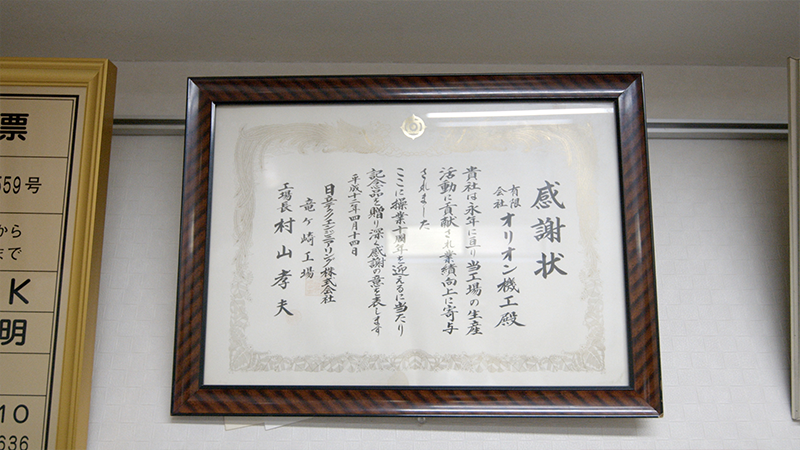 感謝状
有限会社 オリオン機工殿
貴社は永年に亘り当工場の生産
活動に貢献され業績向上に寄与
されました
ここに操業十周年を迎えるに当たり
記念品を贈り深く感謝の意を表します
平成十二年四月十四日
日立テクノエンジニアリング株式会社
竜ヶ崎工場
工場長 村山孝夫
票
559号
から
まで
K
明
10
636